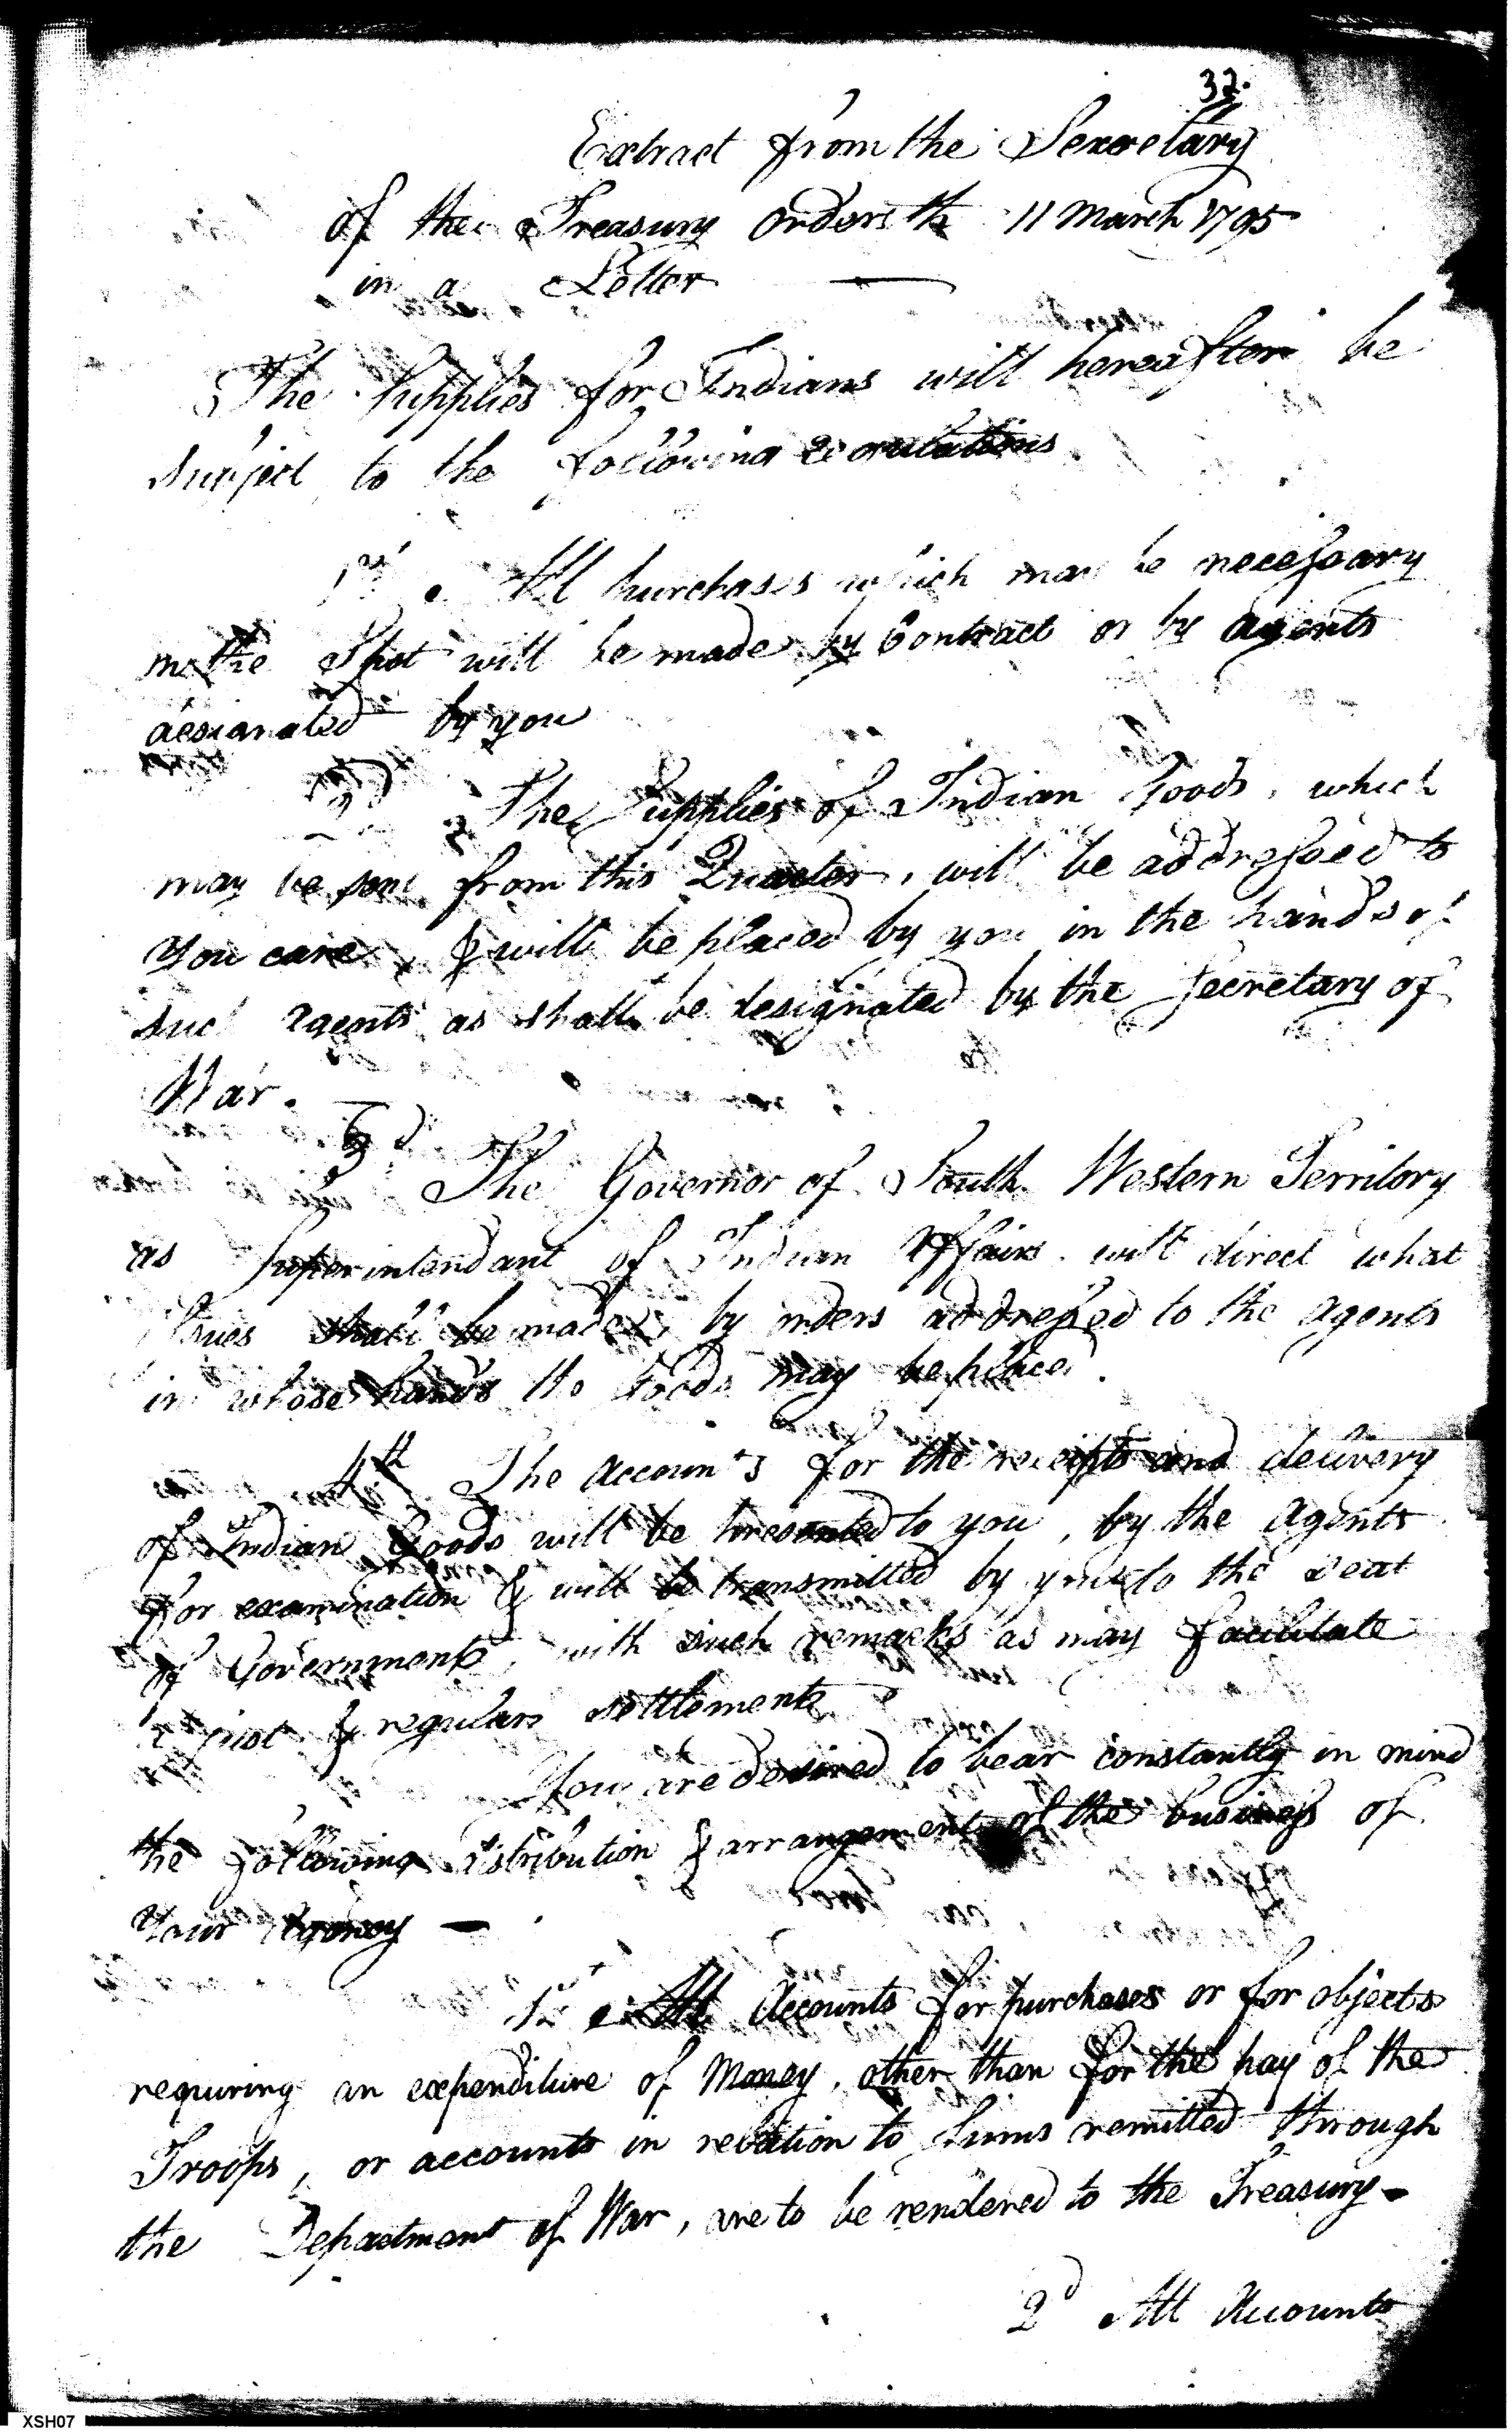 32.
Extract from the Secretary
of the Treasury orders the 11 March 1795
in a Letter
The Supplies for Indians will hereafter be
subject to the following regulations
1st. All purchases which may be necessary
on the Spot will be made by Contract or by agents
designated by you
2d. The Supplies of Indian Goods, which
may be sent from this Quarter, will be addressed to
you care, & will be placed by you in the hands of
such agents as shall be designated by the Secretary of
War.
3d The Governor of South Western Territory
as Superintendant of Indian Affairs will direct what
Issues shall be made, by orders addressed to the agents
in whose hands the Goods may be placed.
4th The Accounts for the receipts and delivery
of Indian Goods will be presented to you, by the Agents
for examination & will be transmitted by you to the seat
of Government, with such remarks as may facilitate
a just & regular settlement
You are desired to bear constantly in mind
the following distribution & arrangement of the business of
Your Agency —
1st. All Accounts for purchases or for objects
requiring an expenditure of Money, other than for the pay of the
Troops, or accounts in relation to Sums remitted through
the Department of War, are to be rendered to the Treasury -
2d All Accounts
XSH07